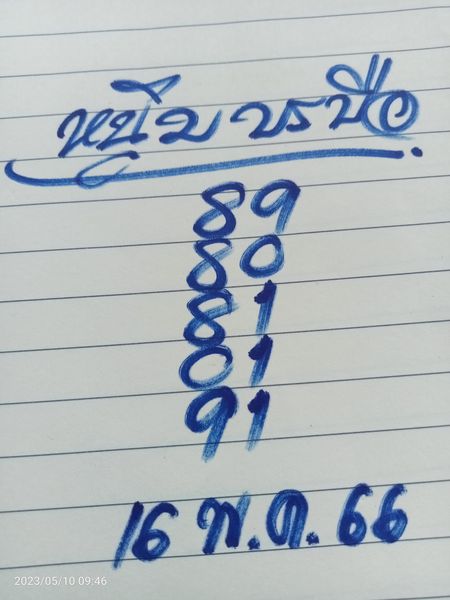 หนุ่ม บรบือ
89
80
81
01
91
16 พ.ค. 66
2023/05/10 09:46